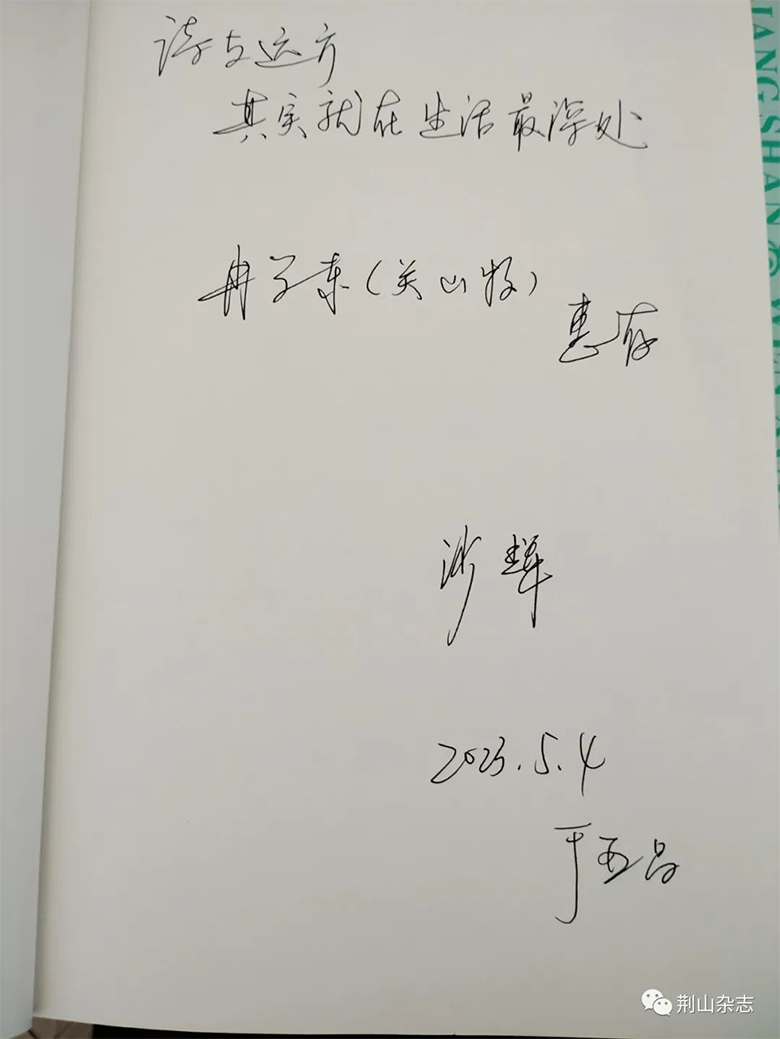 诗与远方
其实就在生活最深处
冉 东（关山牧）
惠存
沙辉
2023.5.4
于西昌
IANG SHAN
荆山杂志